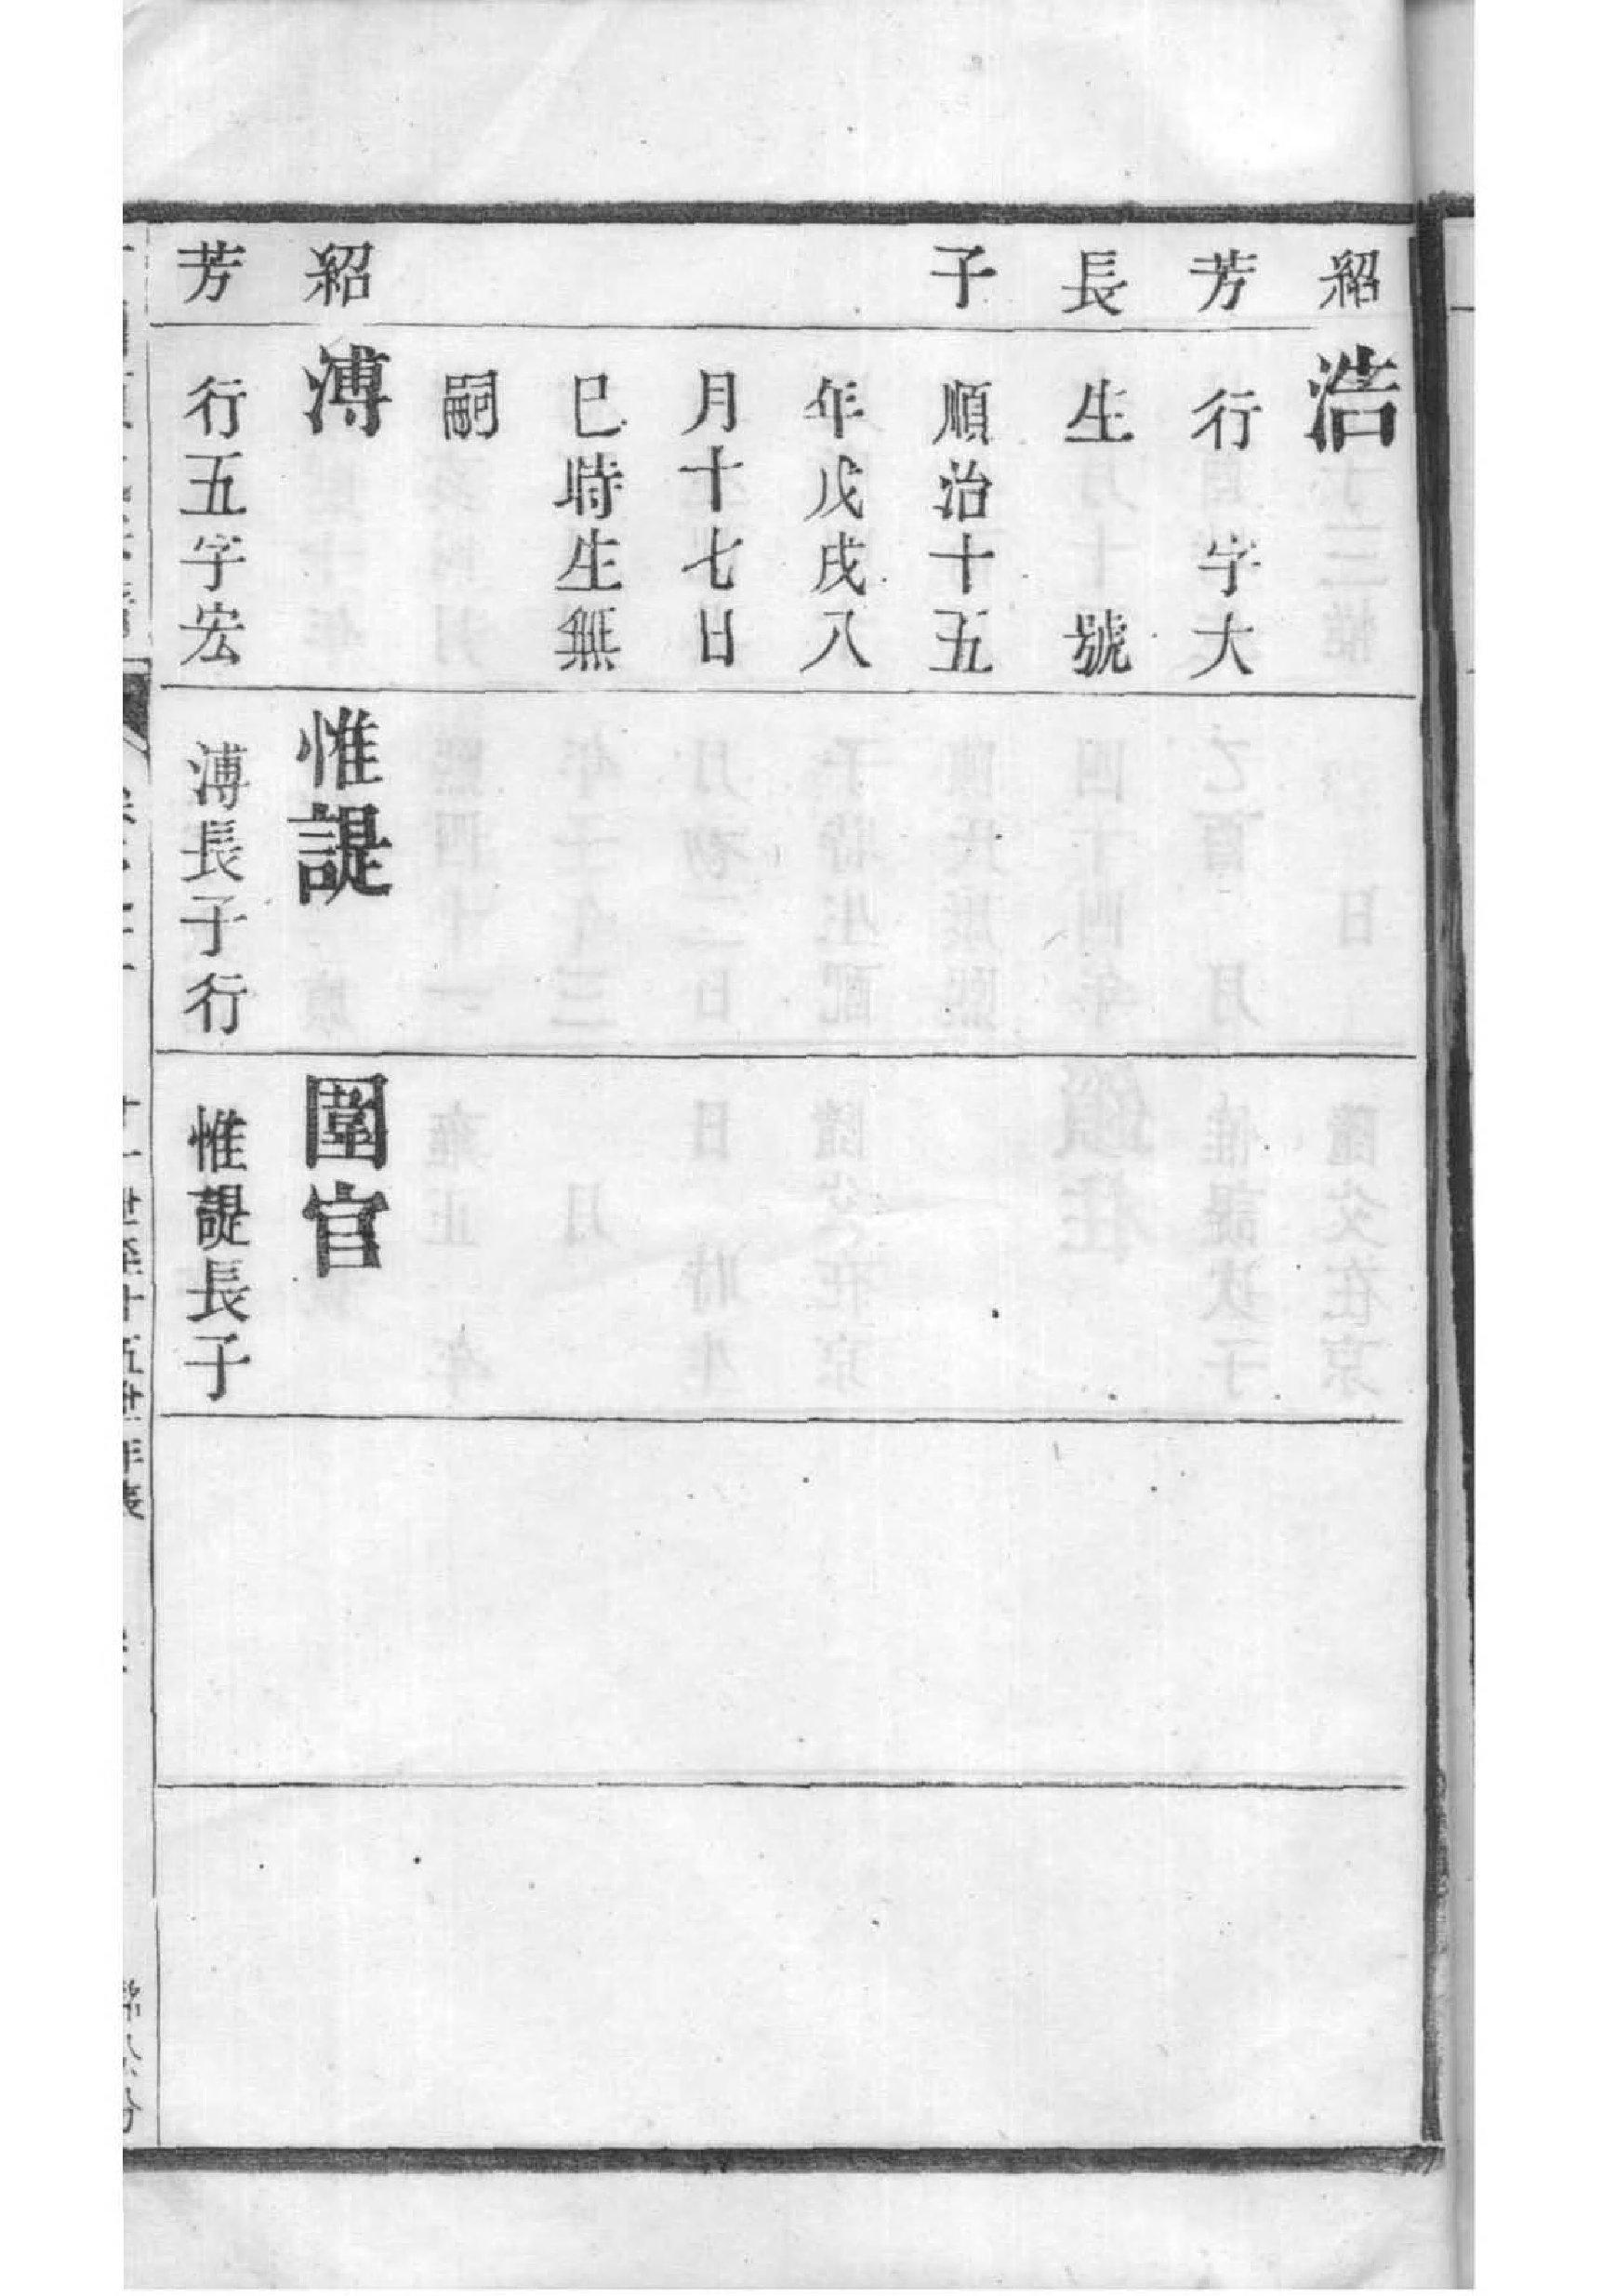 紹芳長子
浩
行 字大
生 號
順治十五
年戊戌八
月十七日
巳時生無
嗣
紹芳
溥
行五字宏
惟諟
溥長子行
圍官
惟諟長子